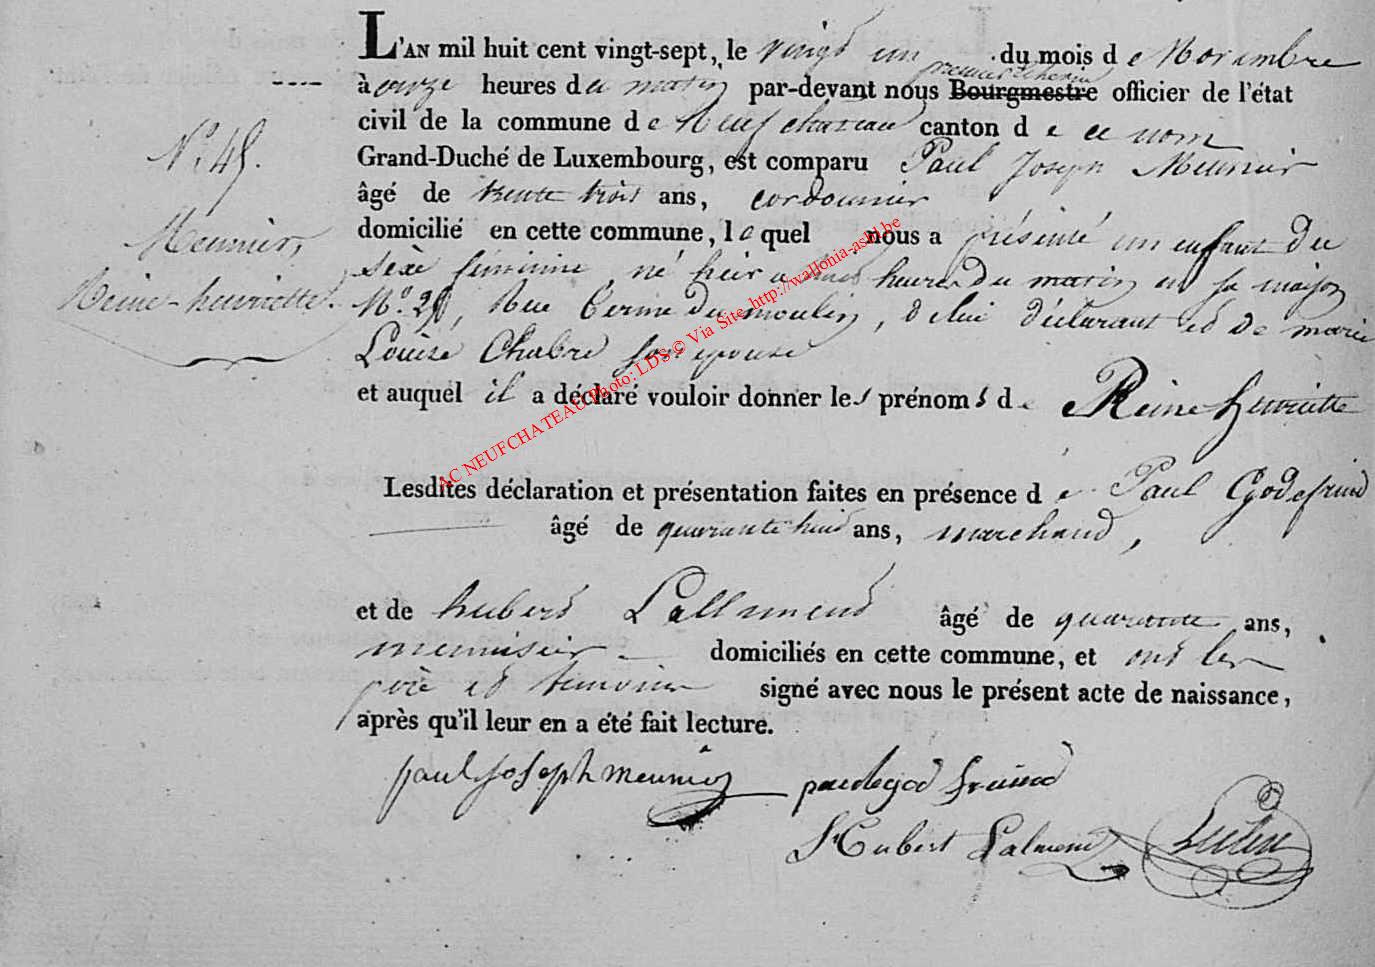 L'AN mil huit cent vingt-sept, le vingt un du mois de Novembre
premier Echevin
à onze heures du matin par-devant nous Bourgmestre officier de l'état
civil de la commune de Neufchateau canton de ce nom
Grand-Duché de Luxembourg, est comparu Paul Joseph Meunier
âgé de trente trois ans, cordonnier
domicilié en cette commune, lequel nous a présenté un enfant du
sexe féminine né hier a heures du matin en sa maison
N.º 2 Rue du moulin, de lui déclarant et de marie
Louise Chabre son epouse
et auquel il a déclaré vouloir donner les prénoms de Reine henriette
Lesdites déclaration et présentation faites en présence de Paul Godefriend
âgé de quarante huit ans, marchand,
et de hubert Lallemend âgé de quarante ans,
menuisier domiciliés en cette commune, et ont les
père et temoins signé avec nous le présent acte de naissance,
après qu'il leur en a été fait lecture.
paul joseph meunier
h Hubert Lalmend
N.º 45.
Meunier,
Reine-henriette.
AC NEUFCHATEAU Photo: LDS © Via Site http://wallonia-asbl.be